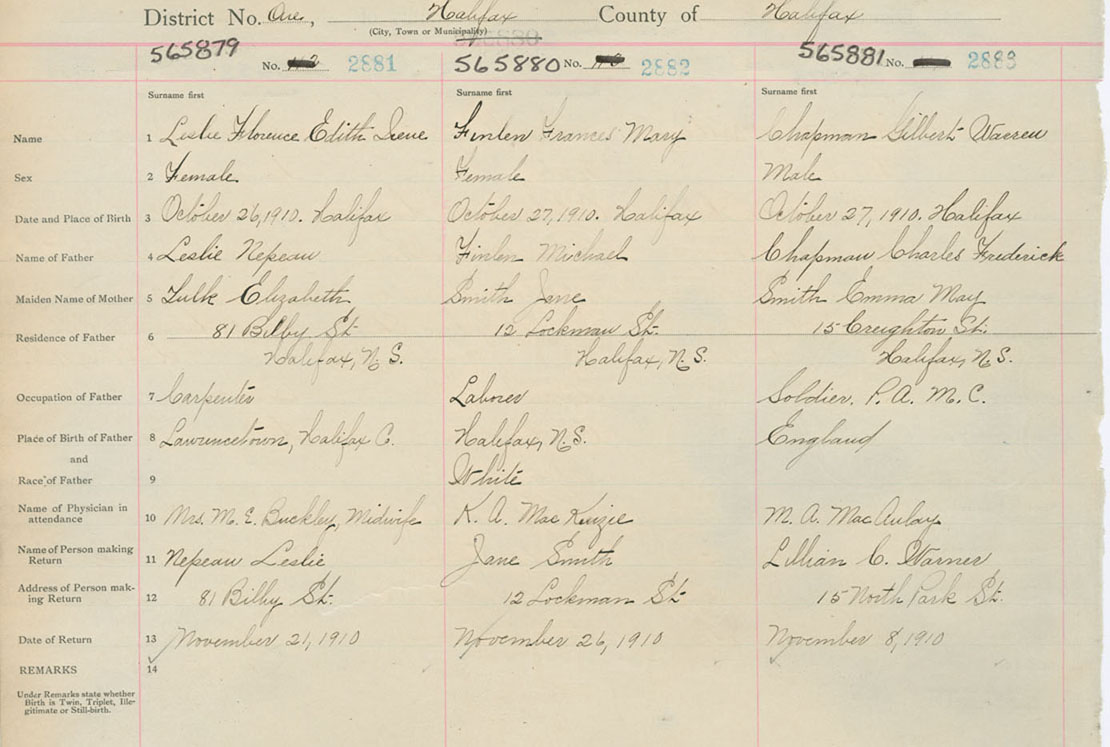 District No. One, Halifax County of Halifax
(City, Town or Municipality)
565879 No. 2881 565880 No. 2882 565881 No. 2883
Surname first Surname first Surname first
Name 1 Leslie Florence Edith Irene Finlen Frances Mary Chapman Gilbert Warren
Sex 2 Female Female Male
Date and Place of Birth 3 October 26, 1910. Halifax October 27, 1910. Halifax October 27, 1910. Halifax
Name of Father 4 Leslie Nepean Finlen Michael Chapman Charles Frederick
Maiden Name of Mother 5 Tulk Elizabeth Smith Jane Smith Emma May
Residence of Father 6 81 Bilby St. 12 Lockman St. 15 Creighton St.
Halifax, N.S. Halifax, N.S. Halifax, N.S.
Occupation of Father 7 Carpenter Laborer Soldier. R.A.M.C.
Place of Birth of Father 8 Lawrencetown, Halifax C. Halifax, N.S. England
and
Race of Father 9 White
Name of Physician in
attendance 10 Mrs. M. E. Buckley, Midwife K. A. MacKenzie M. A. MacAulay
Name of Person making
Return 11 Nepean Leslie Jane Smith Lillian C. Warner
Address of Person mak-
ing Return 12 81 Bilby St. 12 Lockman St. 15 North Park St.
Date of Return 13 November 21, 1910 November 26, 1910 November 8, 1910
REMARKS 14
Under Remarks state whether
Birth is Twin, Triplet, Ille-
gitimate or Still-birth.